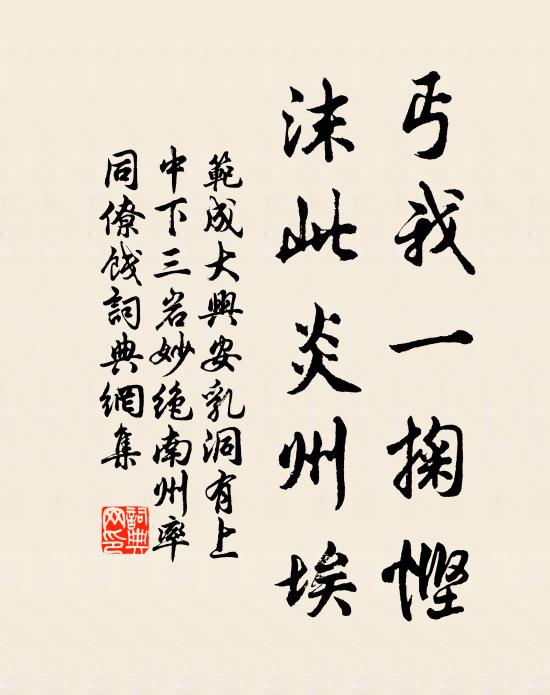 丐我一掬慳
沫此炎州埃
範成大興安乳洞有上
中下三岩妙絶南州率
同僚餞詞典網集
詞典
网印